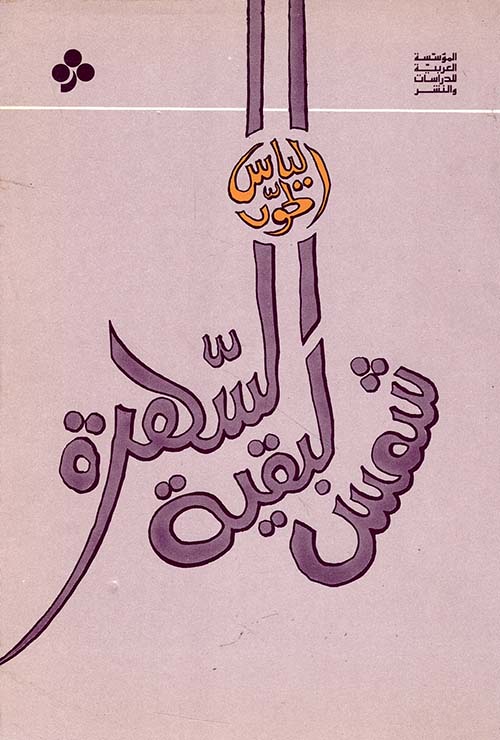 المؤسسة
العربيّة
للدراسات
والنشر
الياس
لحّود
شمس
لبقية
السّهرة